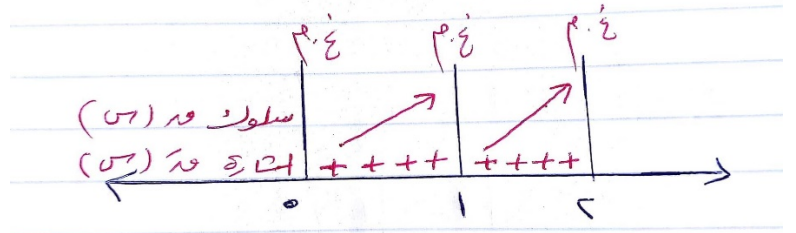 غ.م غ.م غ.م
سلوك ق (س)
إشارة قَ (س) + + + + + + + +
٠ ١ ٢